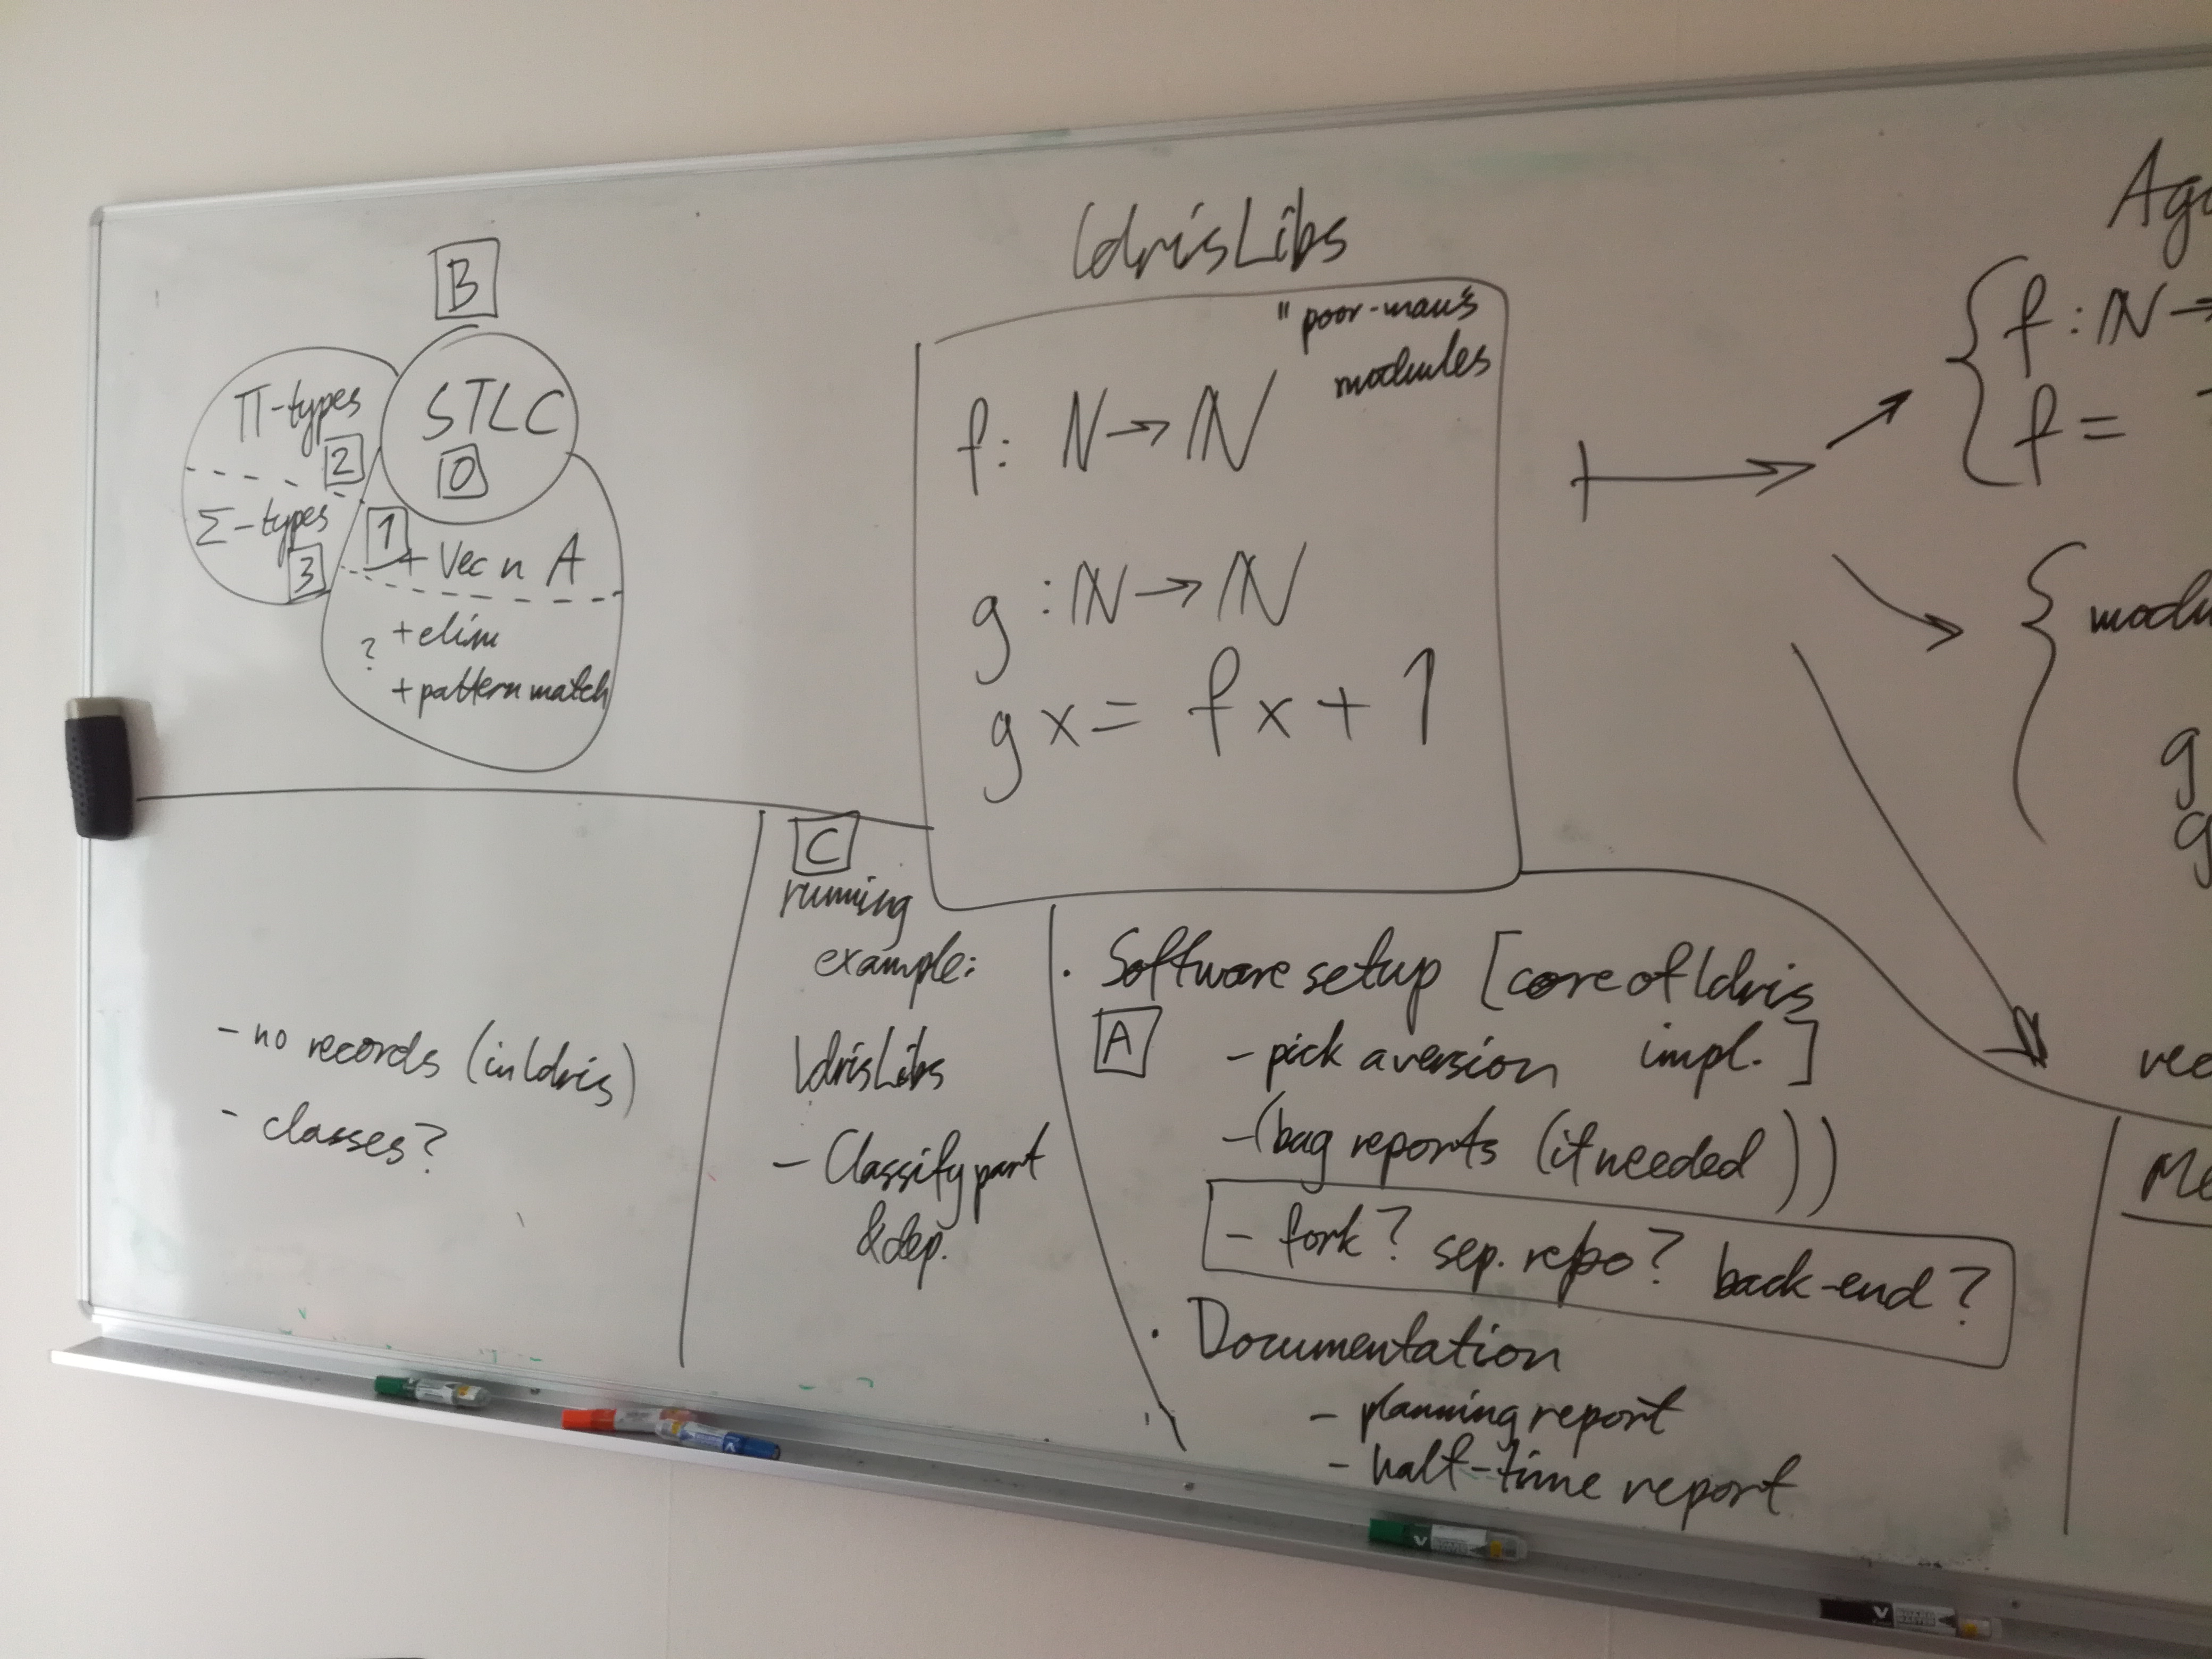 B
Π-types
2
Σ-types
3
STLC
0
1
+ Vec n A
? + elim
+ pattern match
IdrisLibs
"poor-man's
modules
f: N → ℕ
g : ℕ → ℕ
g x = f x + 1
f : ℕ →
f =
g
- no records (in Idris)
- classes?
C
running
example:
IdrisLibs
- Classify part
& dep.
· Software setup [core of Idris
impl.]
A
- pick a version
- (bug reports (if needed))
- fork? sep. repo? back-end?
· Documentation
- planning report
- half-time report